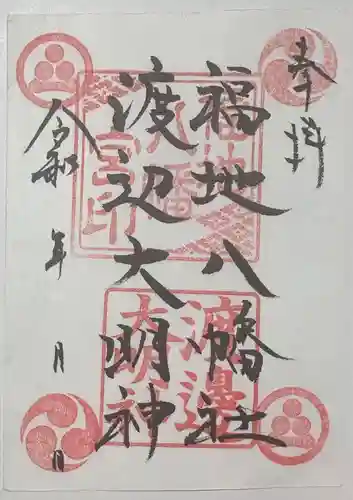 奉拝
福地八幡社
渡辺大明神
令和 年 月 日
福地八幡宮印
渡邉大明神